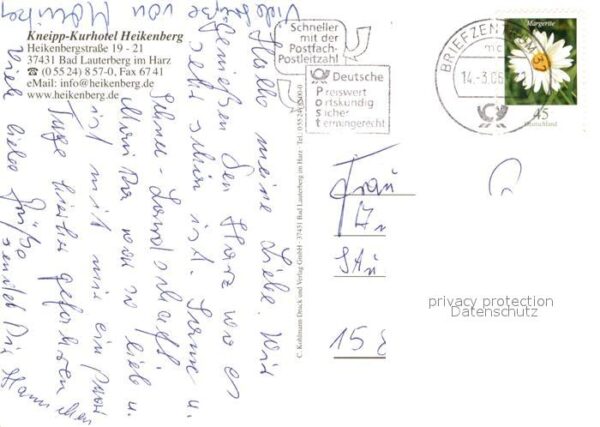 Kneipp-Kurhotel Heikenberg
Heikenbergstraße 19 - 21
37431 Bad Lauterberg im Harz
☎ (0 55 24) 8 57-0, Fax 67 41
eMail: info@heikenberg.de
www.heikenberg.de
Hallo meine Liebe. Wir
genießen den Harz wo es
so sehr schön ist. Sonne u.
Schnee-Landschaft
war so lieb u.
ist mit mir ein paar
Tage hierher gefahren
Viele liebe Grüße
sendet Dir
Viele
von
C. Kohlmann Druck und Verlag GmbH · 37431 Bad Lauterberg im Harz · Tel.
Schneller
mit der
Postfach-
Postleitzahl
Deutsche
Preiswert
Ortskundig
Sicher
Termingerecht
BRIEFZENTRUM 37
mc
14.-3.06
Margerite
45
Deutschland
Frau
15
privacy protection
Datenschutz